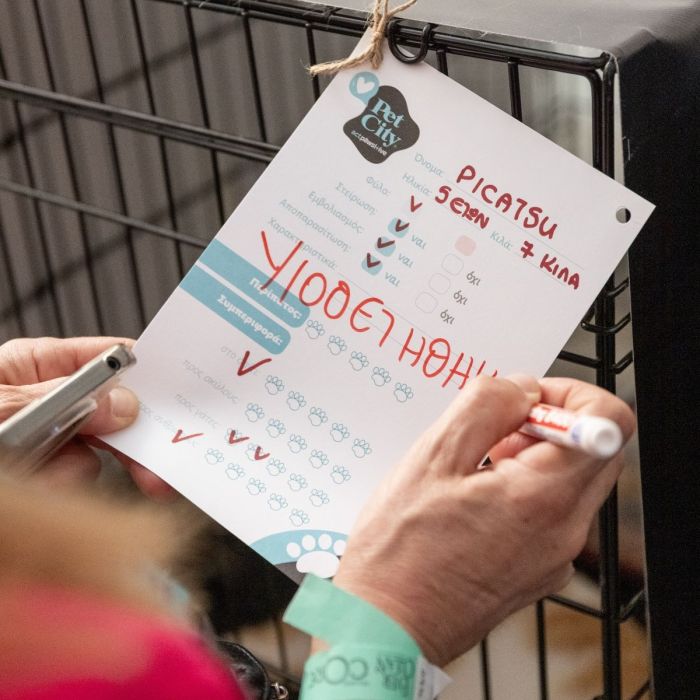 Pet
City
act pawsitive
Όνομα: PICATSU
Ηλικία: 5 ΕΤΩΝ Κιλά: 7 ΚΙΛΑ
Φύλο:
Στείρωση: ναι όχι
Εμβολιασμός: ναι όχι
Αποπαρασίτωση: ναι όχι
Χαρακτηριστικά:
ΥΙΟΘΕΤΗΘΗΚ
Περίπατος:
Συμπεριφορά:
στο
προς σκύλους
προς γάτες
προς ανθρώπους